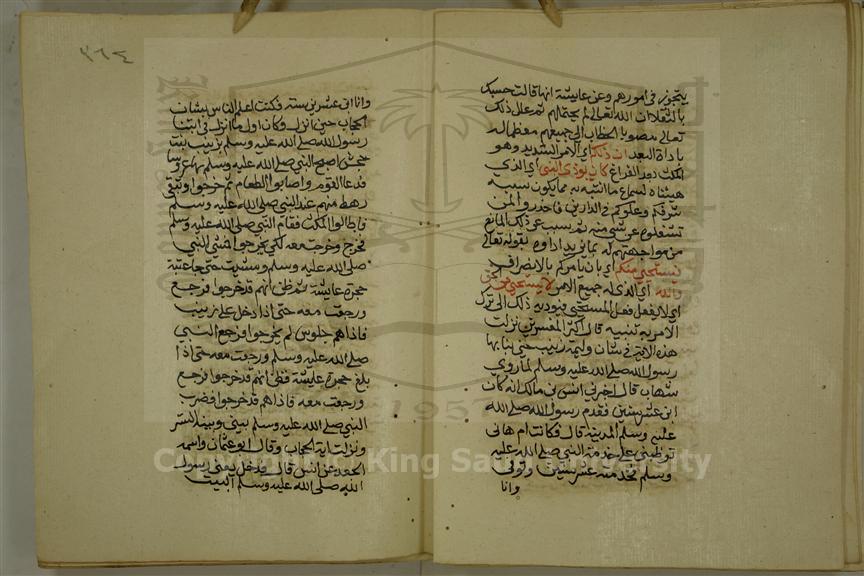 يتجوز في امورهم وعن عايشة انها قالت حسبك
بالثقلاء ان الله تعالى لم يحتملهم ثم علل ذلك
تعالى مصوبا الخطاب الى جميعهم معظما له
باداة البعد ان ذلكم اي الامر الشديد وهو
المكث بعد الفراغ كان يوذي النبي اي الذي
هيئناه لسماع ما ننبئه به مما يكون سبب
شرفكم وعلوكم في الدارين فاحذروا ان
تشغلوه عن شي منه ثم سبب عن ذلك المانع
من مواجهتهم له بما يريد اداوه بقوله تعالى
فيستحيي منكم اي بان يامركم بالانصراف
والله اي الذي له جميع الامر لا يستحيي من الحق
اي لا يفعل فعل المستحيي فيوديه ذلك الى ترك
الامر به تنبيه قال اكثر المفسرين نزلت
هذه الاية في شان وليمة زينب حين بنا بها
رسول الله صلى الله عليه وسلم لما روي
شهاب قال اخبرني انس بن مالك انه كان
ابن عشر سنين فقدم رسول الله صلى الله
عليه وسلم المدينة قال فكانت ام هاني
توظبني على خدمة النبي صلى الله عليه
وسلم فخدمته عشر سنين وتوفي
وانا
٣٦٤
وانا ابن عشرين سنة فكنت اعلم الناس بشان
الحجاب حين انزل وكان اول ما انزل في ابتنا
رسول الله صلى الله عليه وسلم بزينب بنت
جحش اصبح النبي صلى الله عليه وسلم بها عروسا
فدعا القوم واصابوا الطعام ثم خرجوا وبقي
رهط منهم عند النبي صلى الله عليه وسلم
فاطالوا المكث فقام النبي صلى الله عليه وسلم
فخرج وخرجت معه لكي يخرجوا فمشى النبي
صلى الله عليه وسلم ومشيت حتى جا عتبة
حجرة عايشة ثم ظن انهم قد خرجوا فرجع
ورجعت معه حتى اذا دخل على زينب
فاذا هم جلوس لم يخرجوا فرجع النبي
صلى الله عليه وسلم ورجعت معه حتى اذا
بلغ حجرة عايشة فظن انهم قد خرجوا فرجع
ورجعت معه فاذا هم قد خرجوا فضرب
النبي صلى الله عليه وسلم بيني وبينه الستر
ونزلت اية الحجاب وقال ابو عثمان واسمه
الجعد عن انس قال فدخل يعني رسول
الله صلى الله عليه وسلم البيت
1957
King Saud University